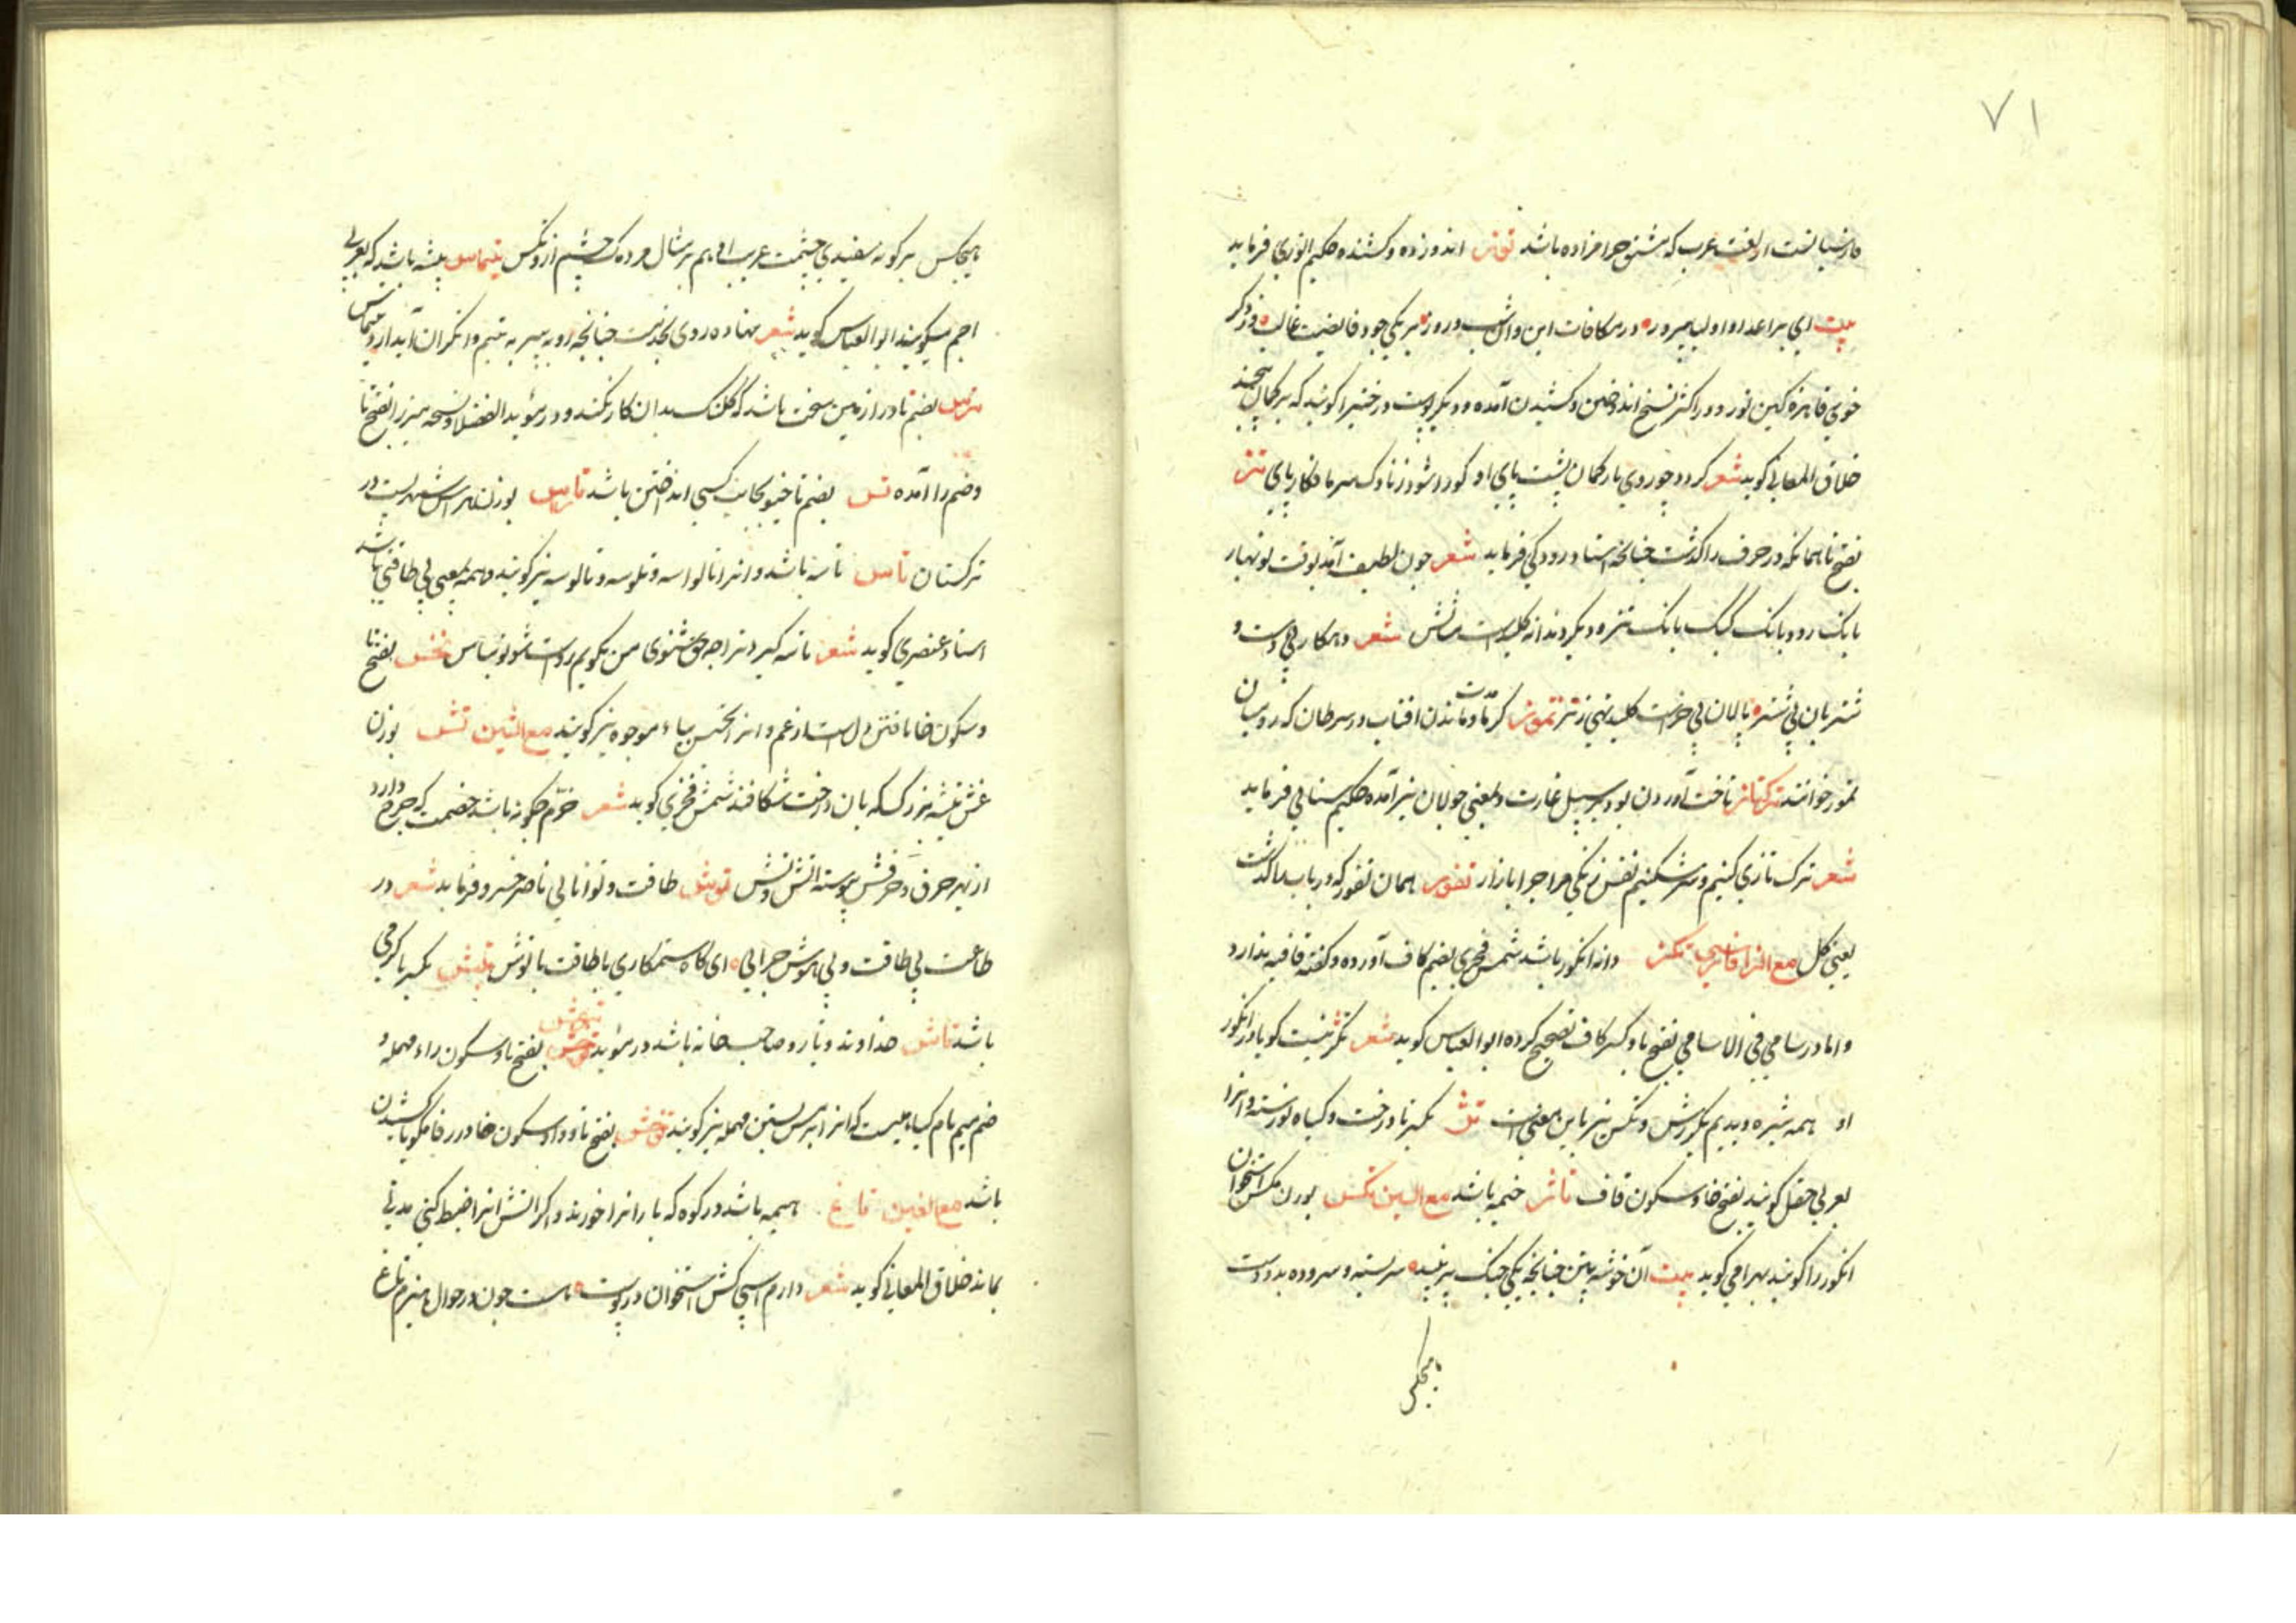 ۷۱
لغت عرب که مشتق حرامزاده باشد توز اندوزده و کشنده حکیم انوری فرماید
بیت ای بر اعدا و اولیا پیروز در مکافات این و آن شب و روز بر یکی جود فایضت غالب وز دگر
خوی قاهره کین توز و در اکثر نسخ اندوختن و کشیدن آمده و دیگر پوست درختیرا گویند که بر کمان پیچند
خلاق المعانی گوید شعر کردد چو روی بار کمان پشت پای او کو در شود ز ناوک سرما فکار پای تز
بفتح تا همانکه در حرف را گذشت چنانچه استاد رودکی فرماید شعر چون لطیف آمد بوقت نوبهار
بانک رود و بانک کبک و بانک تز و دیگر دندانه کلید است مثالش شعر و همکار بی دست و
شتربان بی شتر پالیان بی خر است کلید نهی ز تز تموز گرما و ماندن افتاب در سرطان که رومیان
تموز خوانند ترکتاز تاخت آوردن بود بر سبیل غارت و بمعنی جولان نیز آمده حکیم سنایی فرماید
شعر ترک تازی کنیم و بر شکنیم نفس زنگی مزاج را بازار تفوز همان تفور که در باب را گذشت
یعنی کل مع الزا فارسی تکژ دانه انگور باشد شمس فخری بضم کاف آورده و گفته قافیه ندارد
و اما در سامی فی الاسامی بفتح تا و کسر کاف تصحیح کرده ابوالعباس گوید شعر تکژ نیست گویا در انگور
او همه شیره دیدیم یکسر رزش و تکس نیز باین معنی است تژ بکسر تا درخت و گیاه نورسته و انرا
بعربی حقل گویند بفتح حا و سکون قاف تاژ خیمه باشد مع السین تکس بوزن مکس استخوان
انگور را گویند بهرامی گوید بیت آن خوشه بین چنانچه یکی خیک پر نبید سر بسته و سروده بدو دست
هیچکس
هیچکس بر گونه سفیدی چشمت عریب ا و هم بر مثال مردمک چشم از و تکس پشه باشد که بعربی
گویند ابوالعباس گوید شعر نهاده روی بحضرت چنانچه روبه پیر به تیم وانگران آید از در تیماس
ترس بضم تا در از زمین سخت باشد که کلنک بدان کار نکند و در موید الفضلا و نسخه میرزا بفتح تا
و ضم را آمده تس بضم تا خیو بجانب کسی انداختن باشد تراس بوزن هراس شهریست در
ترکستان تاس تاسه باشد و انرا تالواسه و تلوسه و تالوسه نیز گویند و همه بمعنی بی طاقتی باشد
استاد عنصری گوید شعر تاسه گیرد ترا چه حق شنوی من بگویم رواست شو تو بناس تخس بفتح تا
و سکون خا تافتن دل است از غم و انرا بخس بباء موحده نیز گویند مع الشین تش بوزن
غش تیشه بزرگ که بان درخت شکافند شمس فخری گوید شعر خرم چگونه باشد خصمت که چرخ دارد
از بهر حرق و حرقش پیوسته اتش و تش توش طاقت و توانایی ناصر خسرو فرماید شعر در
طاعت بی طاقت و بی هوش چرایی ای گاه ستمکاری با طاقت با توش تپش بکسر با گرمی
باشد تاش خداوند و یار و صاحب خانه باشد در موید بفتح تا و سکون راء مهمله و
ضم میم نام گیاهیست که انرا ترمس بسین مهمله نیز گویند توخش بفتح تا و واو سکون خا
باشد مع الغین تاغ هیمه باشد در کوه که بار انرا خورند و اگر اتش انرا ضبط کنی مدتی
بماند خلاق المعانی گوید شعر دارم اسبی کش استخوان در پوست هست چون در جوال هیزم تاغ